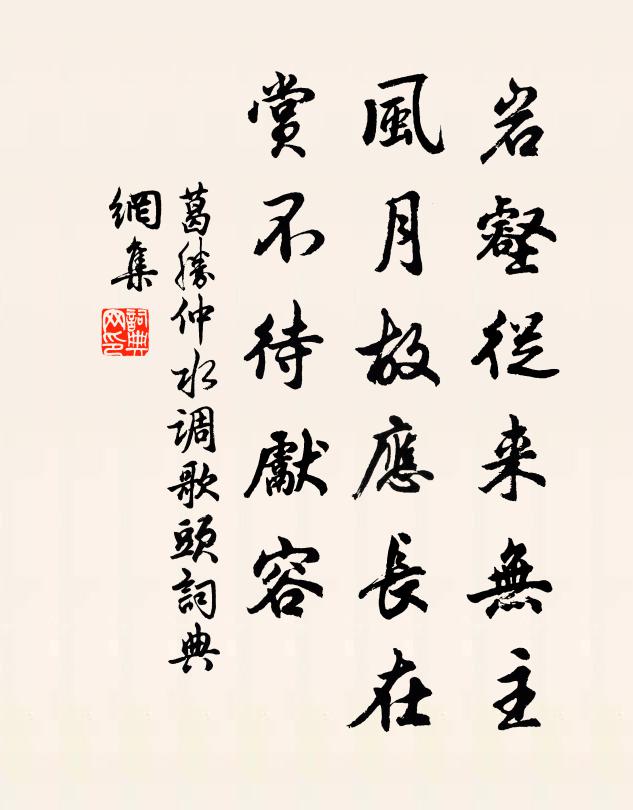 岩壑從来無主
風月故應長在
賞不待獻容
葛勝仲水调歌頭詞典
網集
詞典网印